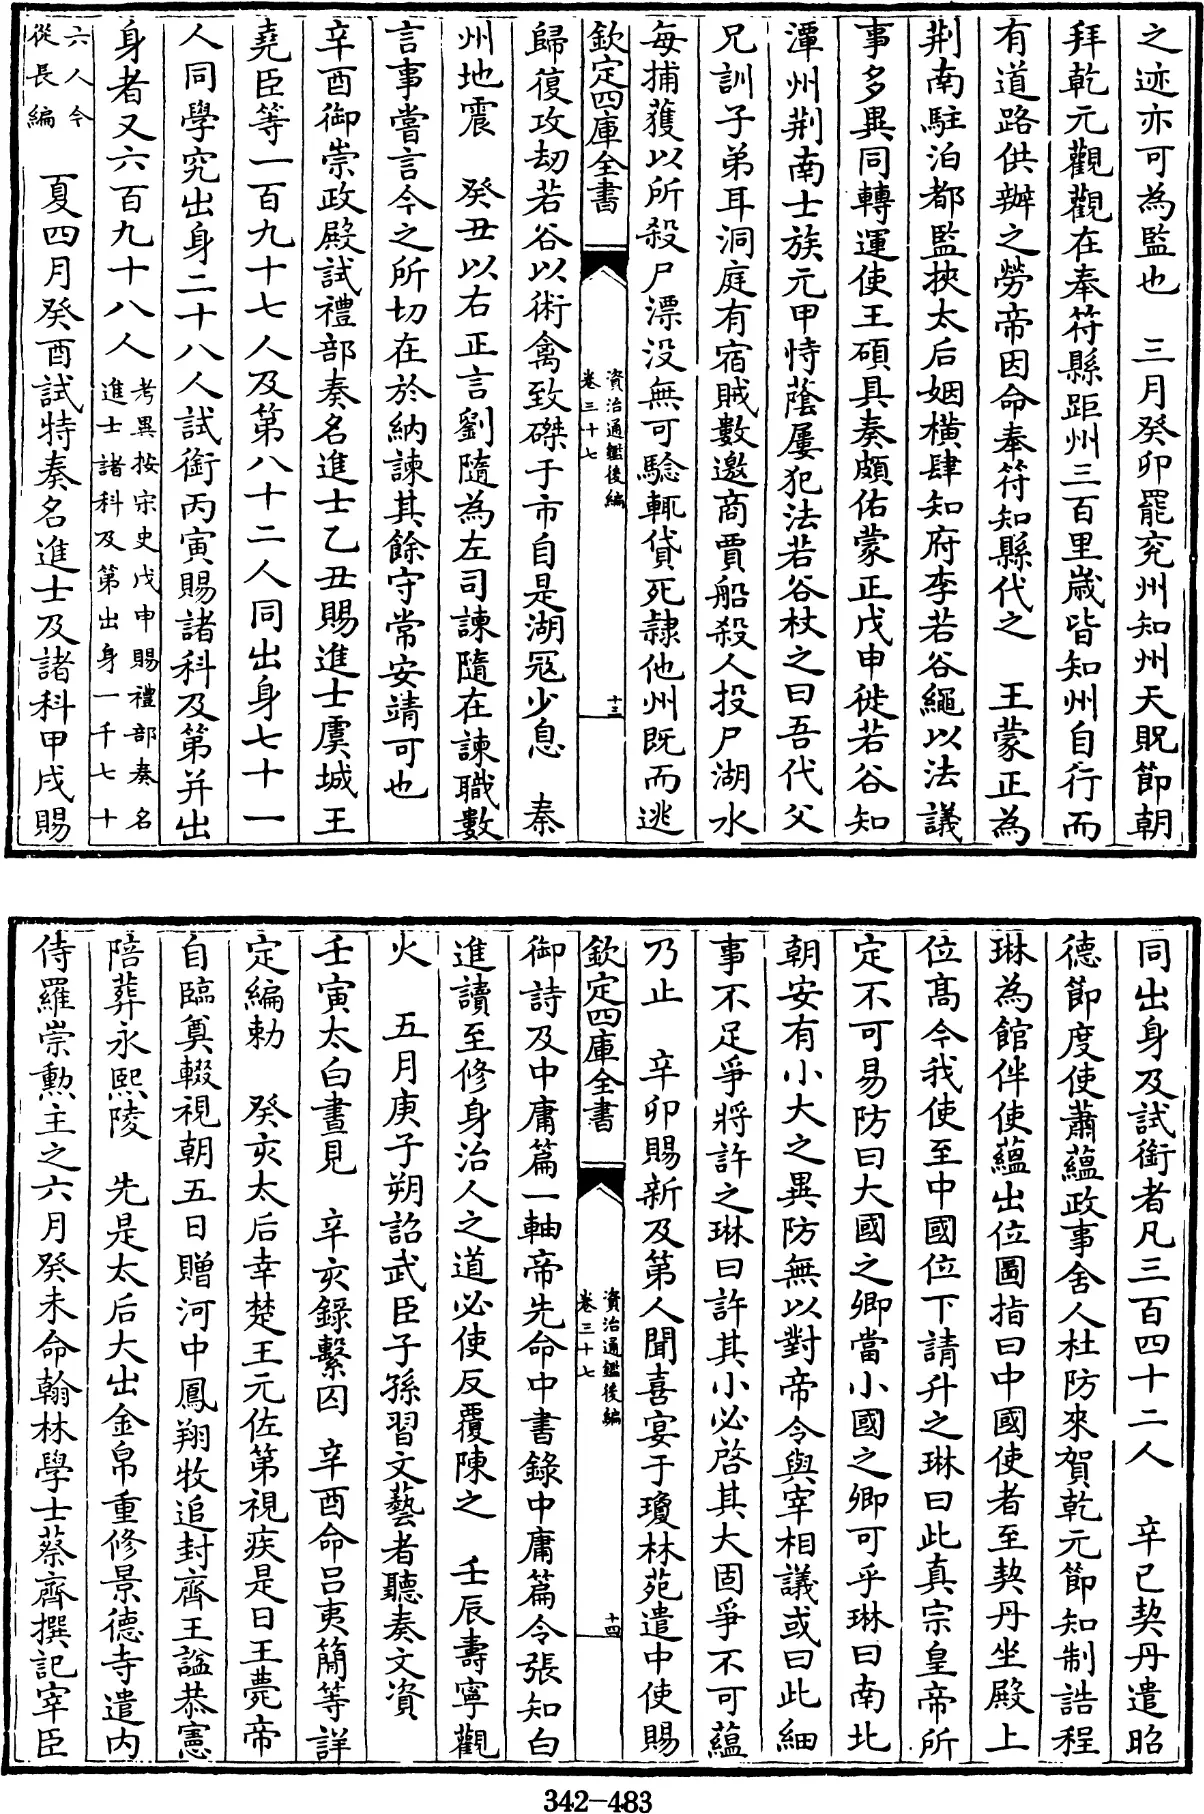 之迹亦可為監也　三月癸卯罷兖州知州天貺節朝
拜乾元觀觀在奉符縣距州三百里歲皆知州自行而
有道路供辦之勞帝因命奉符知縣代之　王蒙正為
荆南駐泊都監挾太后姻橫肆知府李若谷繩以法議
事多異同轉運使王碩具奏頗佑蒙正戊申徙若谷知
潭州荆南士族元甲恃蔭屢犯法若谷杖之曰吾代父
兄訓子弟耳洞庭有宿賊數邀商賈船殺人投尸湖水
每捕獲以所殺尸漂没無可驗輒貸死隸他州既而逃
欽定四庫全書
資治通鑑後編
卷三十七
十三
歸復攻劫若谷以術禽致磔于市自是湖冦少息　秦
州地震　癸丑以右正言劉隨為左司諫隨在諫職數
言事嘗言今之所切在於納諫其餘守常安靖可也
辛酉御崇政殿試禮部奏名進士乙丑賜進士虞城王
堯臣等一百九十七人及第八十二人同出身七十一
人同學究出身二十八人試銜丙寅賜諸科及第并出
身者又六百九十八人考異按宋史戊申賜禮部奏名
進士諸科及第出身一千七十
六人今
從長編　夏四月癸酉試特奏名進士及諸科甲戌賜
同出身及試銜者凡三百四十二人　辛巳契丹遣昭
德節度使蕭蘊政事舍人杜防來賀乾元節知制誥程
琳為館伴使蘊出位圖指曰中國使者至契丹坐殿上
位髙今我使至中國位下請升之琳曰此真宗皇帝所
定不可易防曰大國之卿當小國之卿可乎琳曰南北
朝安有小大之異防無以對帝令與宰相議或曰此細
事不足爭將許之琳曰許其小必啓其大固爭不可蘊
乃止　辛卯賜新及第人聞喜宴于瓊林苑遣中使賜
欽定四庫全書
資治通鑑後編
卷三十七
十四
御詩及中庸篇一軸帝先命中書錄中庸篇令張知白
進讀至修身治人之道必使反覆陳之　壬辰壽寧觀
火　五月庚子朔詔武臣子孫習文藝者聽奏文資
壬寅太白晝見　辛亥錄繫囚　辛酉命吕夷簡等詳
定編勅　癸亥太后幸楚王元佐第視疾是日王薨帝
自臨奠輟視朝五日贈河中鳳翔牧追封齊王諡恭憲
陪葬永熙陵　先是太后大出金帛重修景德寺遣内
侍羅崇勲主之六月癸未命翰林學士蔡齊撰記宰臣
342-483